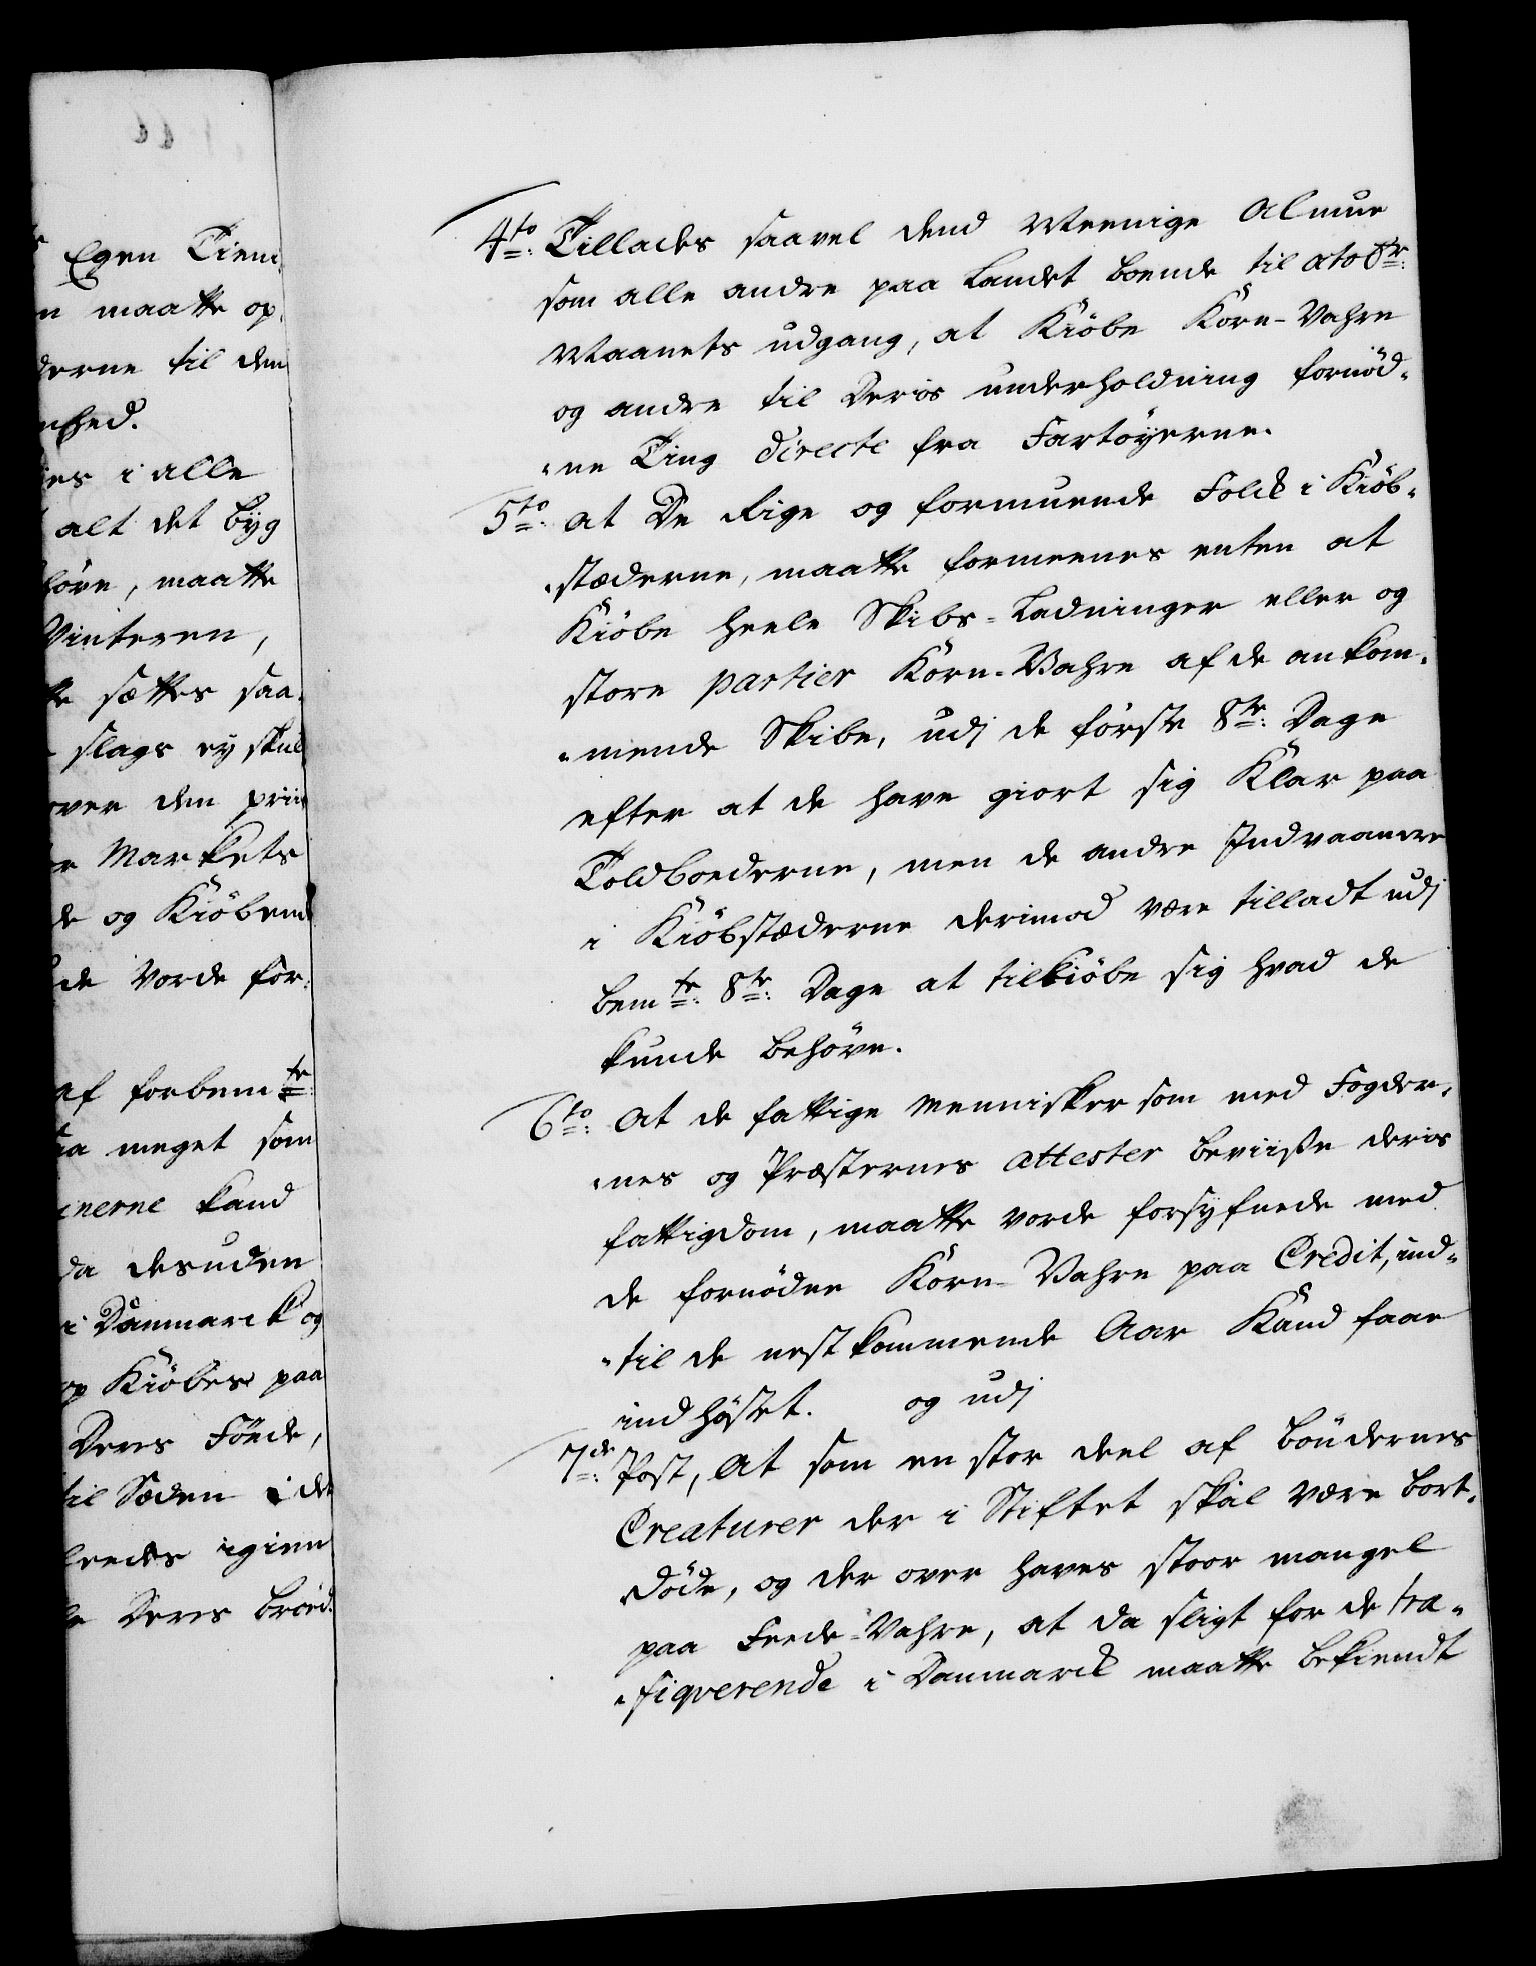 Egen Tieni¬
n maatte op¬
derne til den
nhed.
es i alle
alt det Byg
høve, maatte
Vinteren,
te sættes saa¬
slags ey skul
over den priis
Markets
de og Kiøbend
de vorde for¬
af forbemte:
saa meget som
enerne kand
da desuden
i Danmarck og
op Kiøbes paa
Deres Föede,
til Sæden i det
leedes igien
Deres bröd.
4to: Tillades saavel dend Meenige Almue
som alle andre paa Landet boende til Octobr:
Maanets udgang, at Kiöbe Korn-Vahre
og andre til Deris underholdning fornöd¬
¬ne Ting directe fra Fartöyerne.
5to: at De Rige og formuende Folck i Kiöb¬
¬stæderne, maatte formeenes enten at
Kiöbe heele Skibs-Ladninger eller og
store partier Korn-Vahre af de ankom¬
¬mende Skibe, udj de förste 8te: Dage
efter at de have giort sig Klar paa
Toldboederne, men de andre Indvaanere
i Kiöbstæderne derimod være tilladt udj
bemte: 8te: Dage at tilkiöbe sig hvad de
kunde behöve.
6to: At de fattige Mennisker som med Fogder¬
¬nes og Præsternes attester beviiße deris
fattigdom, maatte vorde forsyfnede med
de fornödne Korn-Vahre paa Credit, ind¬
¬til de nestkommende Aar Kand faae
indhöstet. og udj
7de: Post, At som en stor deel af böndernes
Creaturer der i Stiftet skal være bort¬
döde, og der over haves stoor mangel
paa Feede-Vahre, at da sligt for de tra¬
¬fiqverende i Danmarck maatte bekiendt